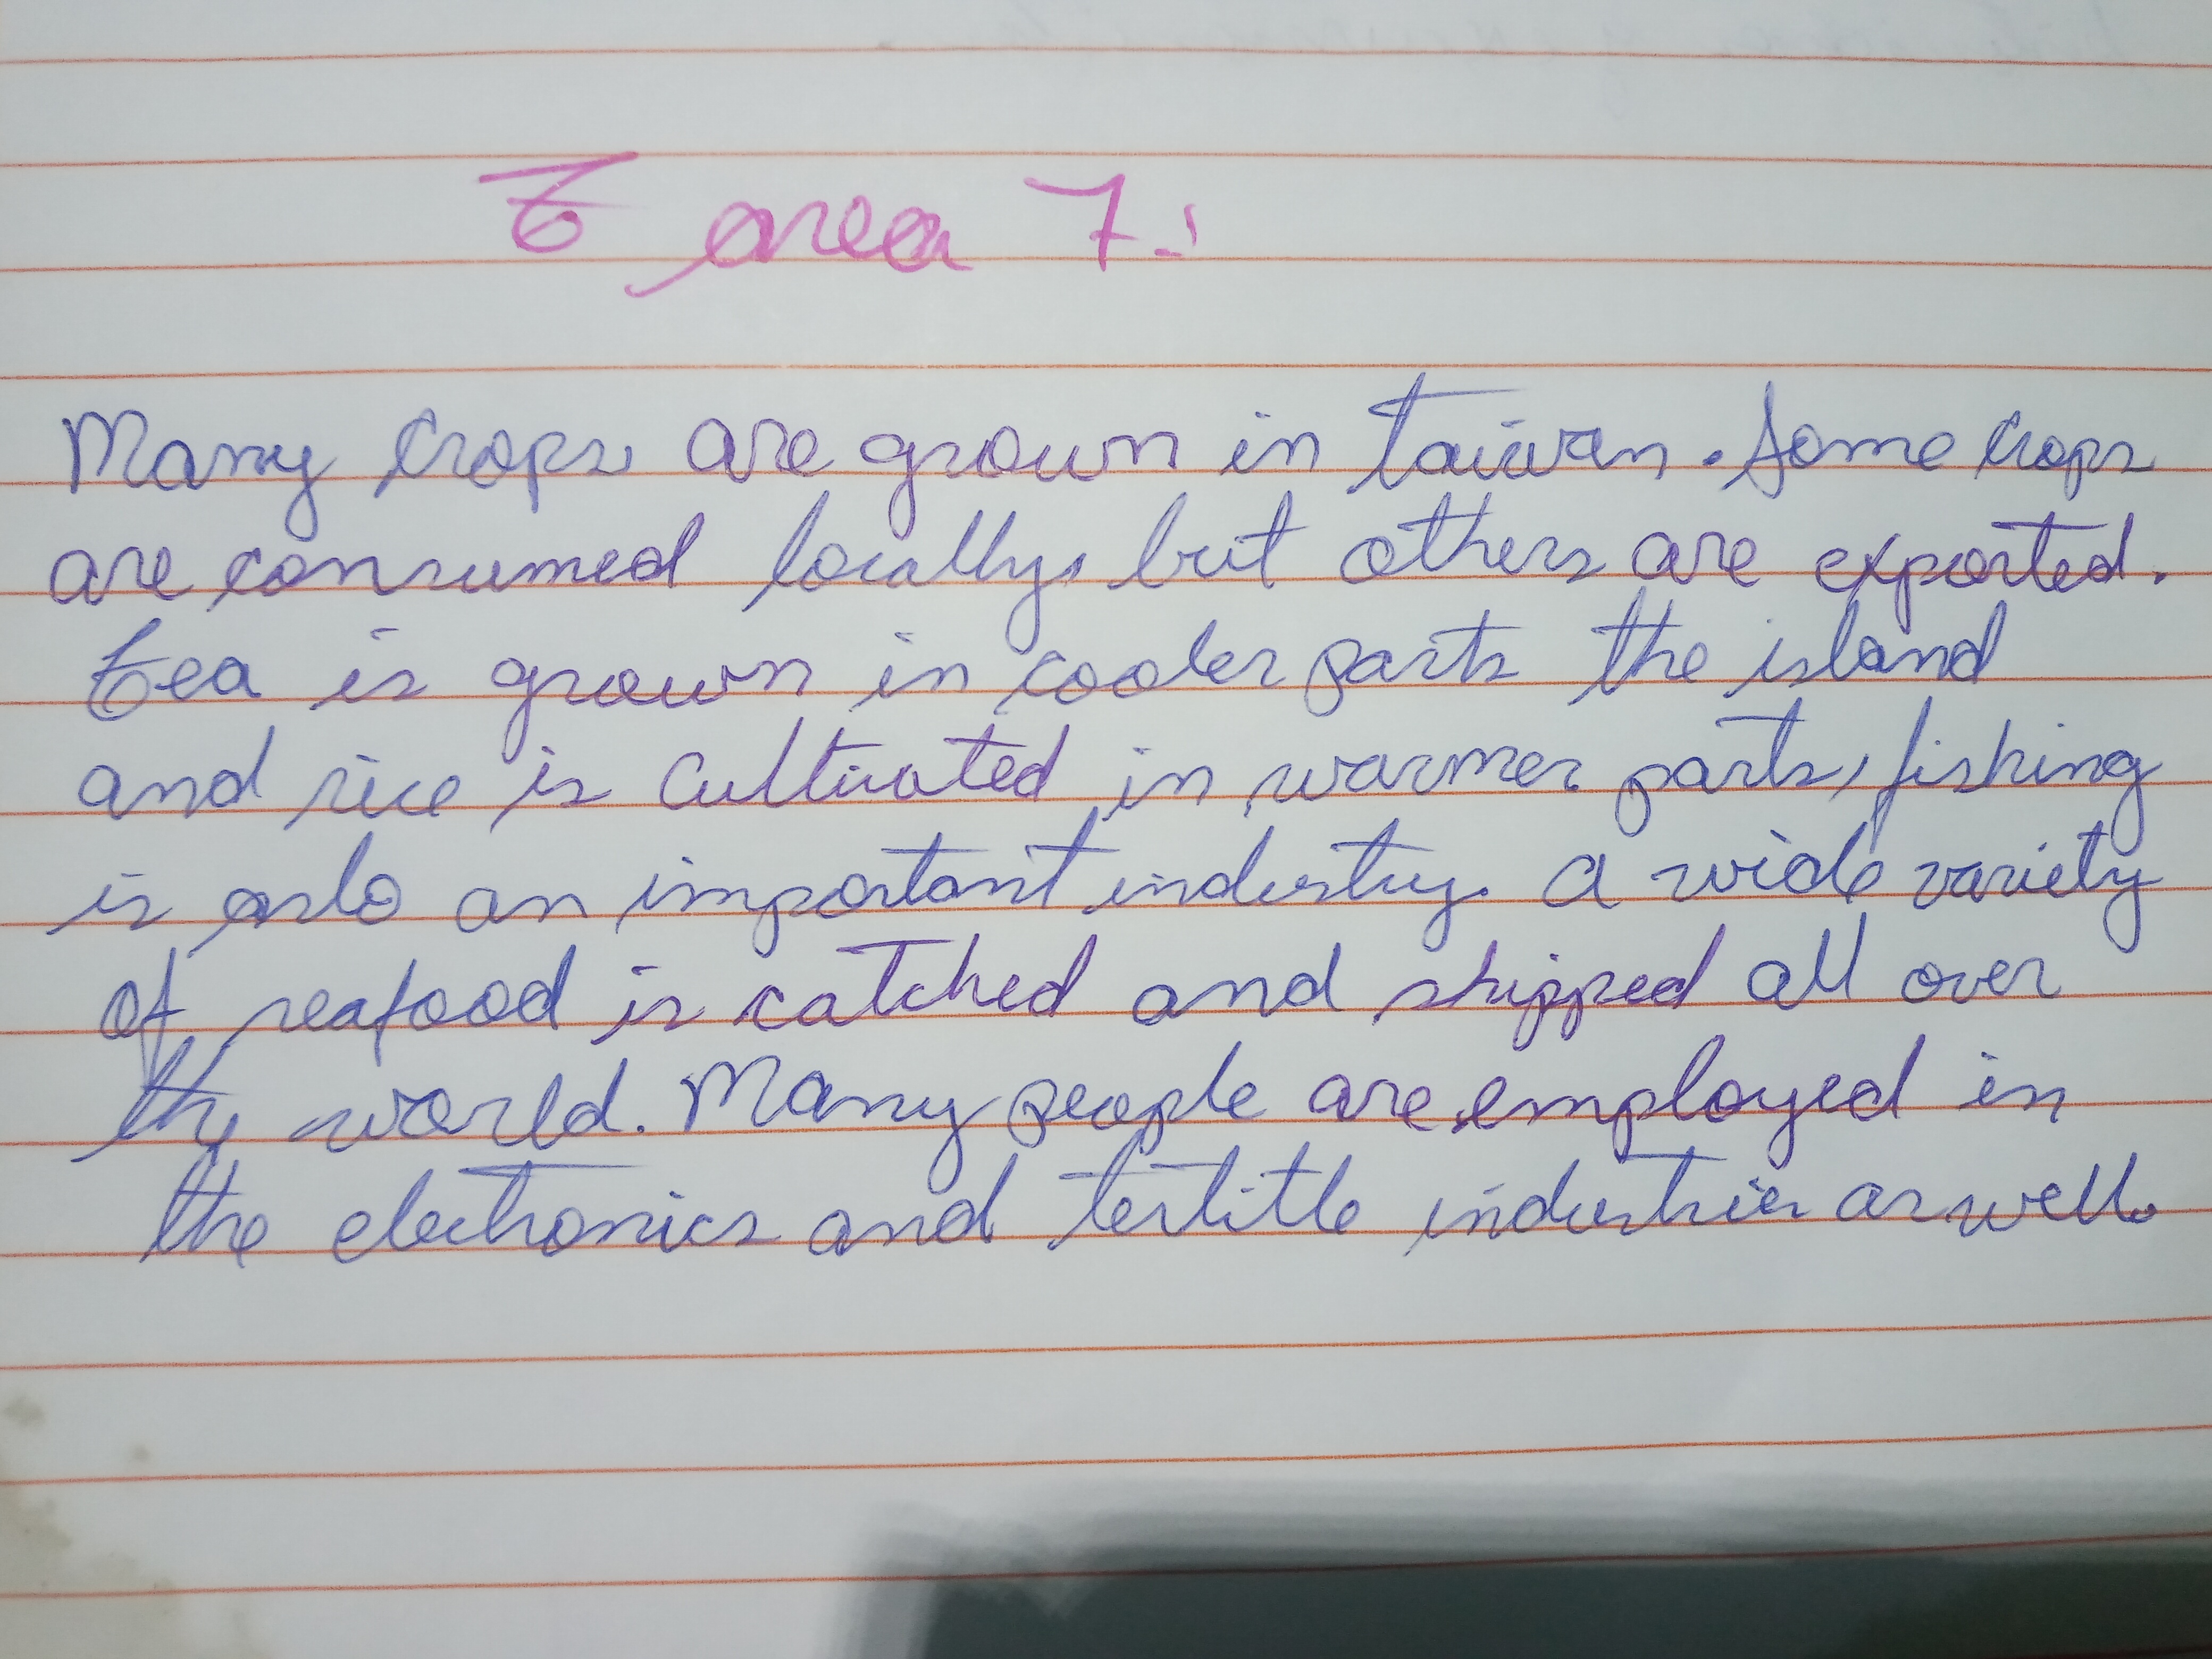 Tarea 7:
Many crops are grown in taiwan. Some crops
are consumed locally, but others are exported.
Tea is grown in cooler parts the island
and rice is cultivated in warmer parts, fishing
is aslo an important industry. A wide variety
of seafood is catched and shipped all over
the world. Many people are employed in
the electronics and tertitle industries as well.